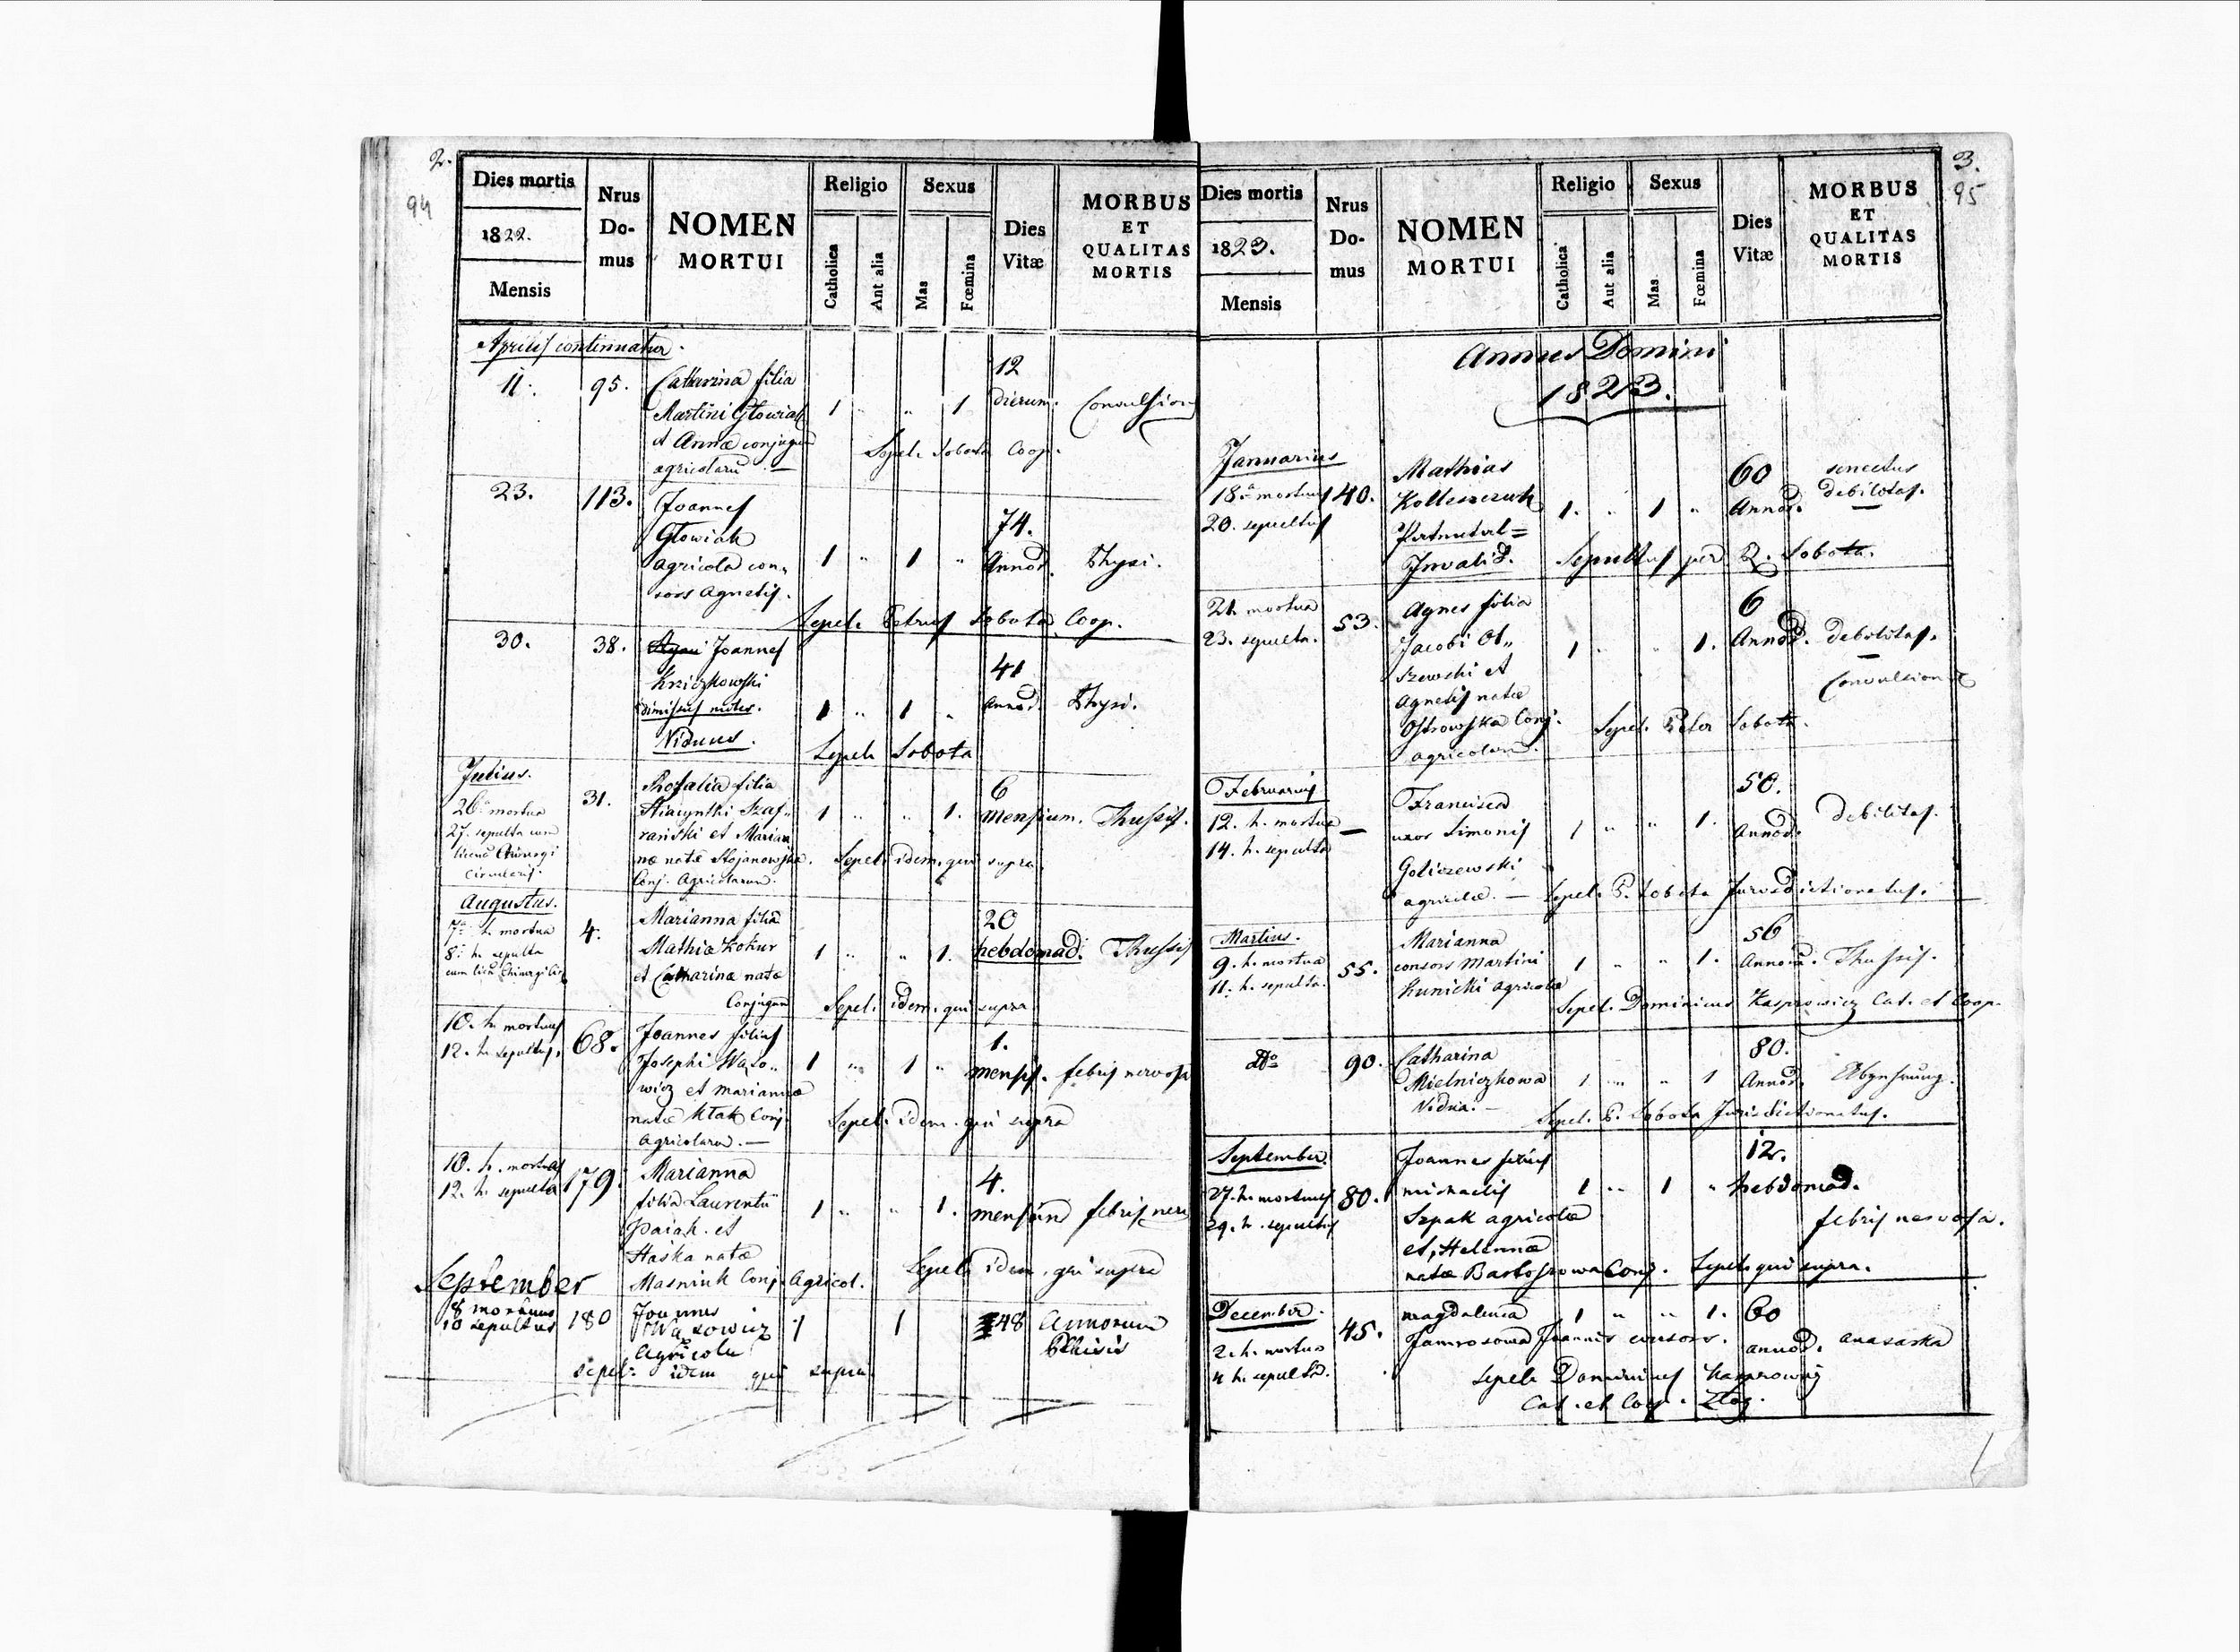 2.
94
Dies mortis
1822.
Mensis
Nrus
Do-
mus
NOMEN
MORTUI
Religio
Catholica
Aut alia
Sexus
Mas
Fœmina
Dies
Vitæ
MORBUS
ET
QUALITAS
MORTIS
Aprilis continuatur.
11. 95. Catharina filia
Martini Głowiak
et Annæ conjugum
agricolarū. —
1 " " 1
12
dierum. Convulsion
Sepel. Sobota Coop.
23. 113. Joannes
Głowiak
agricola con„
sors Agnetis.
1 " 1 "
74.
Annor. Thysi.
Sepel. Petrus Sobota Coop.
30. 38. Joannes
Krziczkowski
dimissus miles.
Viduus.
1 " 1 "
41
Annor. Thysi.
Sepel. Sobota
Julius.
26. mortua
27. sepulta cum
31. Rosalia filia
Hiacynthi Szaf„
rański et Marian
næ natæ Stojanowska.
Conj. Agricolarum.
1 " " 1.
6
mensium. Thussis.
Sepel. idem. qui supra.
Augustus.
7. h. mortua
8. h. sepulta
4. Marianna filia
Mathiæ Kokur
et Catharinæ natæ
Conjugum
1 " " 1.
20
hebdomad. Thussis
Sepel. idem. qui supra
10. h. mortuus
12. h. sepultus.
68. Joannes filius
Josephi Wąso„
wicz et Mariannæ
natæ Ktak Conj.
Agricolarū. —
1 " 1 "
1.
mensis. febris nervosa
Sepel. idem. qui supra
10. h. mortua
12. h. sepulta
179. Marianna
filia Laurentii
Paiak. et
Haska natæ
Masniuk Conj. Agricol.
1 " " 1.
4.
mensium febris nerv
Sepel. idem. qui supra
September
8 mortuus
10 sepultus
180 Joannes
Wąsowicz
Agricola
1 1 48 Annorum
Phtisis
sepel: idem qui supra
3.
95
Dies mortis
1823.
Mensis
Nrus
Do-
mus
NOMEN
MORTUI
Religio
Catholica
Aut alia
Sexus
Mas
Fœmina
Dies
Vitæ
MORBUS
ET
QUALITAS
MORTIS
Annus Domini
1823.
Januarius
18. mortuus
20. sepultus
40. Mathias
Patental=
Invalid.
1. " 1 "
60
Annor.
senectus
debilitas.
Sepultus per P. Sobota.
21. mortua
23. sepulta.
53. Agnes filia
Jacobi Ol„
szewski et
Agnetis natæ
Ostrowska Conj.
agricolarū.
1 " " 1.
6
Annor. debilitas.
Convulsion
Sepel. Peter Sobota.
Februarius
12. h. mortua
14. h. sepulta
— Francisca
uxor Simonis
Goliczewski
agricolæ. —
1 " " 1.
50.
Annor. debilitas.
Sepel. P. Sobota Jurisdictionatus.
Martius.
9. h. mortua
11. h. sepulta.
55. Marianna
consors Martini
Kunicki agricolæ
1 " " 1.
56
Annor. Thussis.
Sepel. Dominicus Kasprowicz Cat. et Coop.
dto 90. Catharina
Mielniczkowa
Vidua. —
1 " " 1
80.
Annor.
Sepel. P. Sobota Jurisdictionatus.
September.
27. h. mortuus
29. h. sepultus
80. Joannes filius
Michaelis
Szpak agricolæ
et, Helennæ
natæ Bartoszowa Conj.
1 " 1 "
12.
hebdomad.
febris nervosa.
Sepel. qui supra.
December.
2. h. mortua
4 h. sepulta.
45. Magdalena
Jamrosowa Joannis consors.
1 " " 1.
60
annor. anasarka
Sepel. Dominicus Kasprowicz
Cat. et Coop. Złoż.